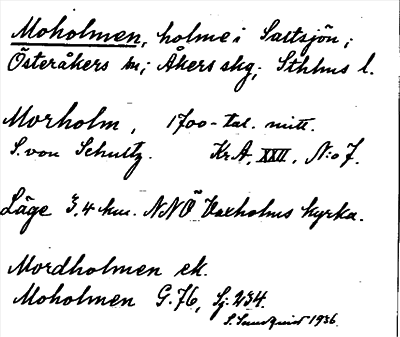 Moholmen, holme i Saltsjön;
Österåkers sn; Åkers skg; Sthlms l.
Morholm, 1700-tal. mitt.
S. von Schultz. KrA, XXII, N:o 7.
Läge 3,4 km. NNÖ Vaxholms kyrka.
Mordholmen ek.
Moholmen G. 76, Sj. 234.
S. Sundquist 1936.